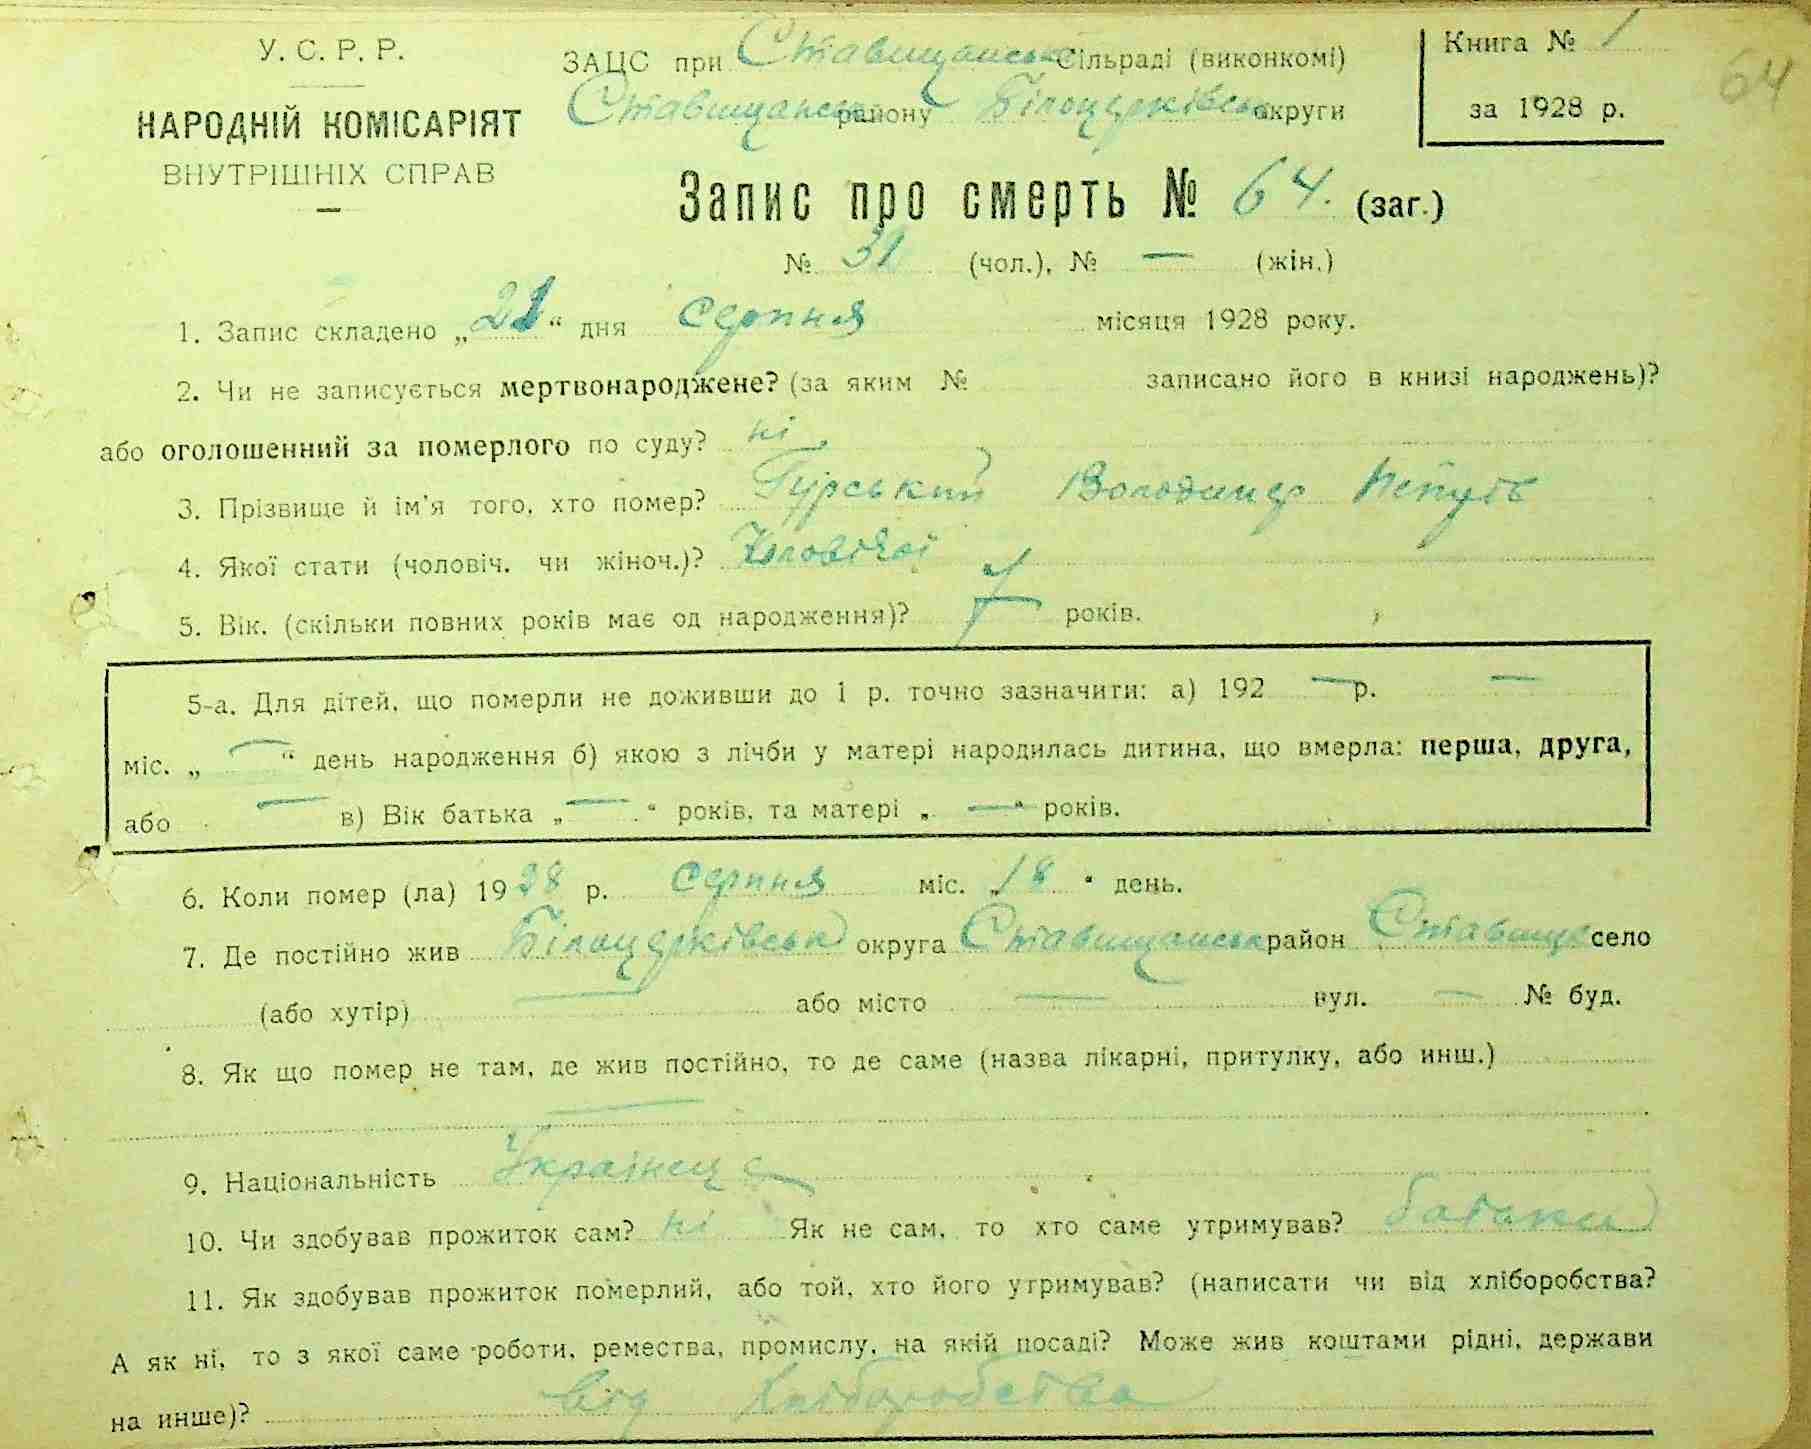 У. С. Р. Р.
НАРОДНІЙ КОМІСАРІЯТ
ВНУТРІШНІХ СПРАВ
ЗАЦС при Ставищанськ Сільраді (виконкомі)
Ставищанськ району Білоцерківськ округи
Книга № 1
за 1928 р.
64
Запис про смерть № 64. (заг.)
№ 31 (чол.), № — (жін.)
1. Запис складено „21“ дня серпня місяця 1928 року.
2. Чи не записується мертвонароджене? (за яким № записано його в книзі народжень)?
або оголошенний за померлого по суду? ні
3. Прізвище й ім'я того, хто помер? Гурський Володимир
4. Якої стати (чоловіч. чи жіноч.)? Чоловічої
5. Вік. (скільки повних років має од народження)? 7 років.
5-а. Для дітей, що померли не доживши до 1 р. точно зазначити: а) 192 — р. —
міс. „ — “ день народження б) якою з лічби у матері народилась дитина, що вмерла: перша, друга,
або — в) Вік батька „ — “ років, та матері „ — “ років.
6. Коли помер (ла) 1928 р. серпня міс. „18“ день.
7. Де постійно жив Білоцерківськ округа Ставищанськ район Ставище село
(або хутір) — або місто — вул. — № буд.
8. Як що помер не там, де жив постійно, то де саме (назва лікарні, притулку, або инш.)
—
9. Національність Українец
10. Чи здобував прожиток сам? ні Як не сам, то хто саме утримував? батьки
11. Як здобував прожиток померлий, або той, хто його утримував? (написати чи від хліборобства?
А як ні, то з якої саме роботи, ремества, промислу, на якій посаді? Може жив коштами рідні, держави
на инше)? від хліборобства